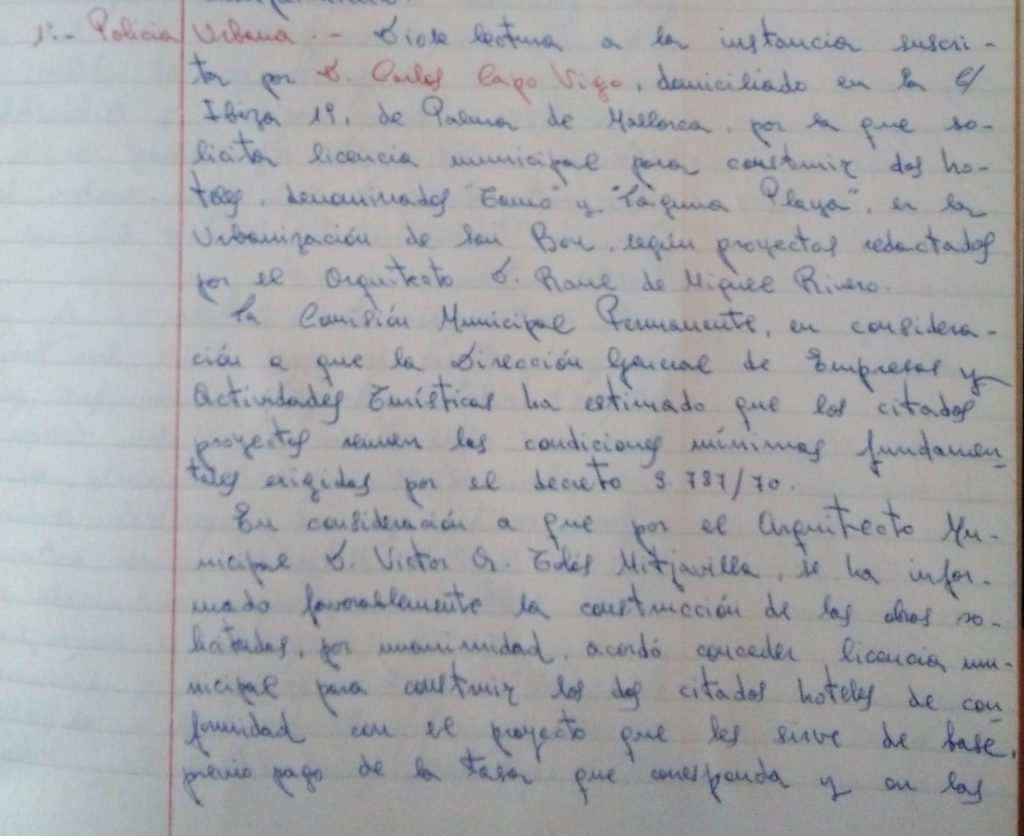 1º.- Policía Urbana.- Diose lectura a la instancia suscri-
ta por D. Carlos Capo Vigo, domiciliado en la c/
Ibiza 19, de Palma de Mallorca, por la que so-
licita licencia municipal para construir dos ho-
teles, denominados "Tano" y "Laguna Playa", en la
Urbanización de Son Bou, según proyectos redactados
por el Arquitecto D. Rone de Miguel Rivero.
La Comisión Municipal Permanente, en considera-
ción a que la Dirección General de Empresas y
Actividades Turísticas ha estimado que los citados
proyectos reunen las condiciones mínimas fundamen
tales exigidas por el decreto 3.787/70.
En consideración a que por el Arquitecto Mu-
nicipal D. Victor G. Tolós Mitjavila, se ha infor-
mado favorablemente la construcción de las obras so-
licitadas, por unanimidad, acordó conceder licencia mu-
nicipal para construir los dos citados hoteles de con
formidad con el proyecto que les sirve de base,
previo pago de la tasa que corresponda y en las